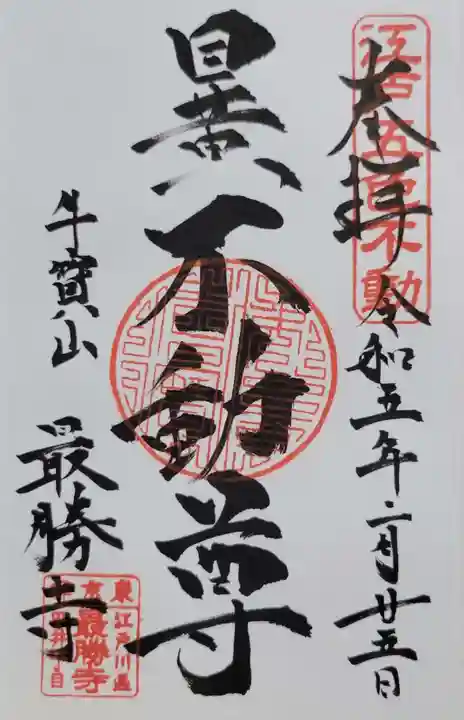 江戸五色不動
奉拝 令和五年二月廿五日
目黄不動尊
牛寳山
最勝寺
東京
江戸川區
最勝寺